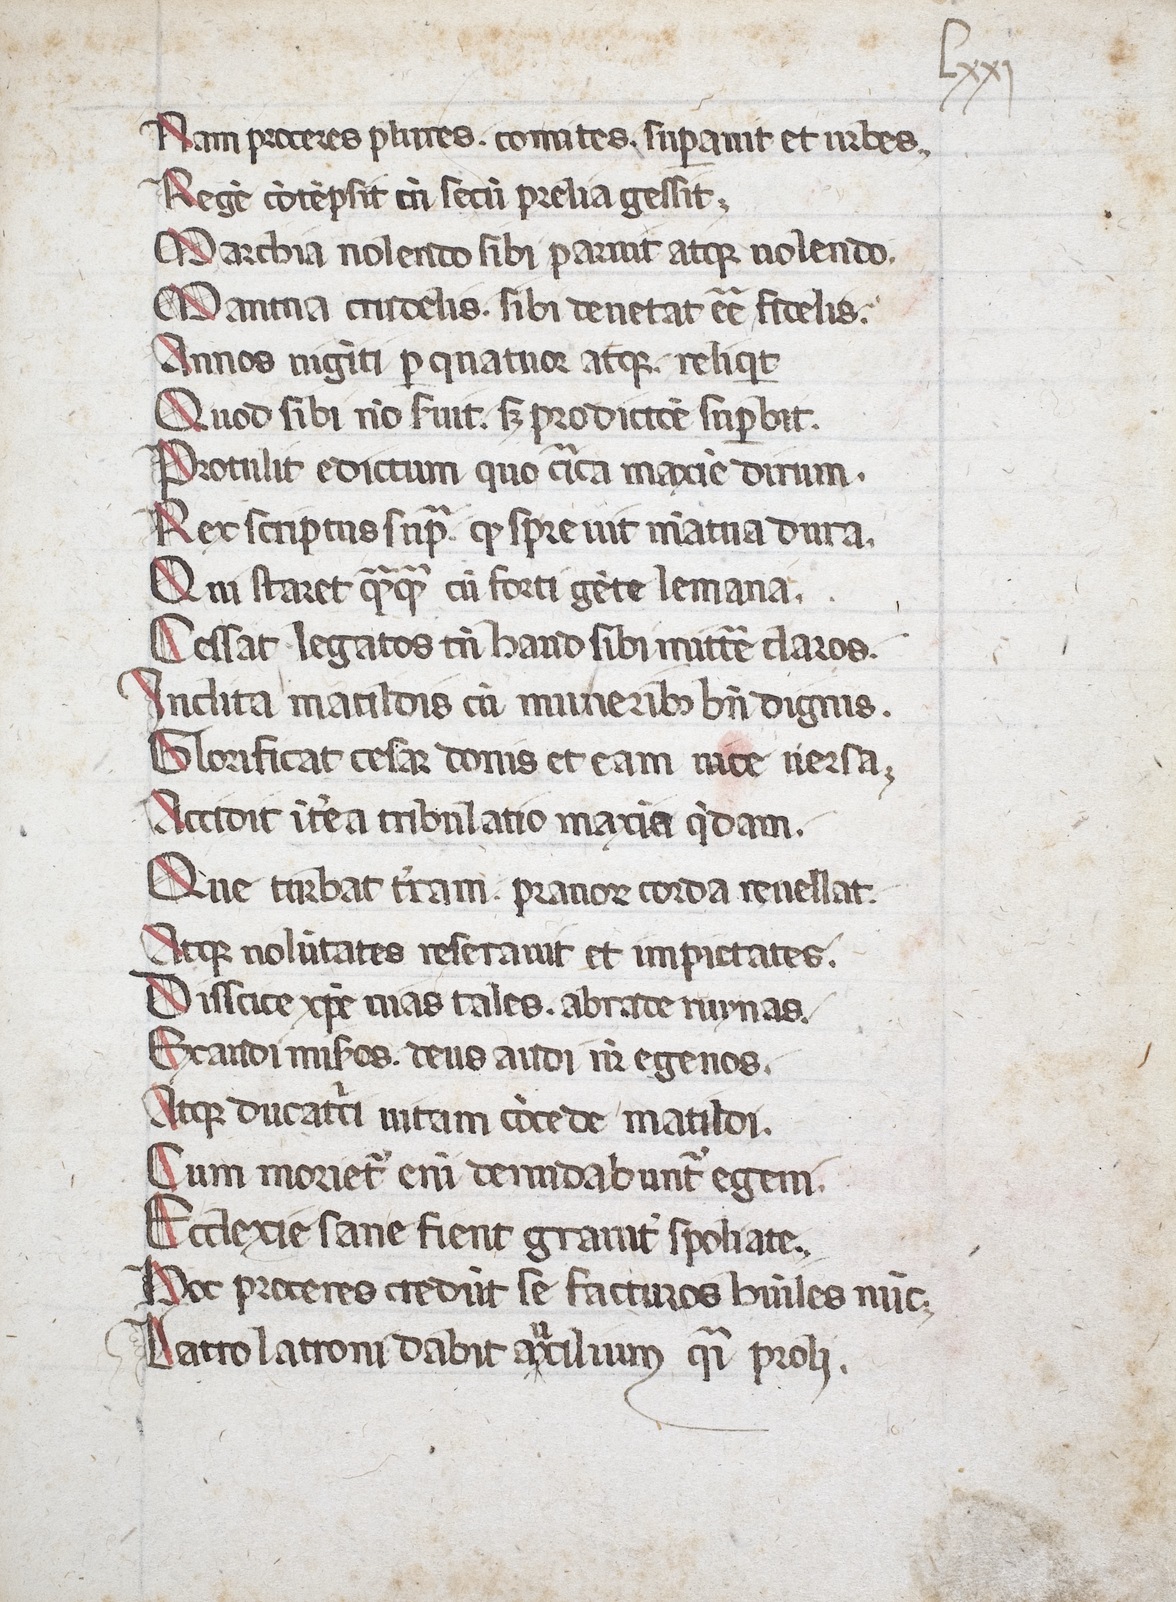 Lxxi
Nam proceres plures. comites. suꝑauit et urbes.,
Regē cōtēpsit cū secū prelia gessit;
Marchia nolendo sibi paruit atqꝫ uolendo.
Mantua crudelis. sibi denetat eē fidelis.
Annos uigīti ꝑ quatuor atqꝫ. reliqͥt
Quod sibi nō fuit. sꝫ prodictōē suꝑbit.
Protulit edictum quo cūca maxīe dirum.
Rex scriptus supͣ. qꝫ spreuit mātua dura.
Qui staret qͣqͣ cū forti gēte lemana.
Cessat legatos tn̄ haud sibi mittē claros.
Inclita matildis cū muneribꝫ bn̄ dignis.
Glorificat cesar donis et eam uice uersa;
Accidit īt̓ea tribulatio maxīa qͥdam.
Que turbat t̓ram. prauoꝝ corda reuellat.
Atqꝫ uolūtates reserauit et impietates.
Disscice xp̄e uias tales. abrade ruynas.
Exaudi mis̓os. deus audi nr̄ egenos.
Atqꝫ ducatͥci uitam cōcede matildi.
Cum moriet᷑ eni denudabunt᷑ egeni.
Ecclexie sane fient grauit̓ spoliate.
Hoc proceres credūt se facturos hūiles nūc;
Latro latroni dabit auxilium qͣi proli.